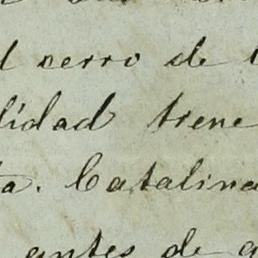 l cerro de
lidad trene
ta. Catalina
antes de a